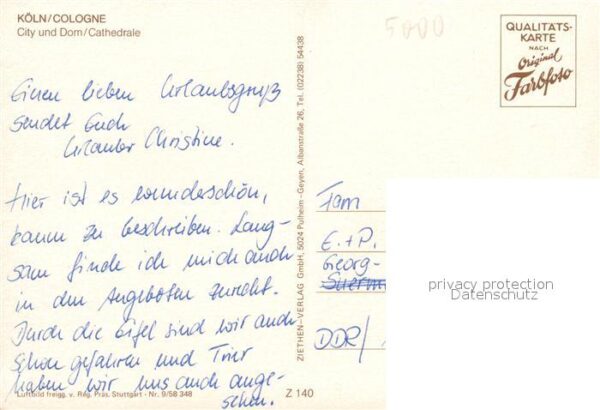 KÖLN/COLOGNE
City und Dom/Cathedrale
5000
QUALITÄTS-
KARTE
NACH
Original
Farbfoto
Einen lieben Urlaubsgruß
sendet Euch
Urlauber Christine.
Hier ist es wunderschön,
kaum zu beschreiben. Lang-
sam finde ich mich auch
in den Angeboten zurecht.
Durch die Eifel sind wir auch
schon gefahren und Trier
haben wir uns auch ange-
sehen.
ZIETHEN-VERLAG GmbH, 5024 Pulheim-Geyen, Albanstraße 26, Tel. (02238) 54438
Fam
E.+P.
Georg-
DDR/
privacy protection
Datenschutz
Luftbild freigg. v. Reg. Präs. Stuttgart - Nr. 9/58 348
Z 140